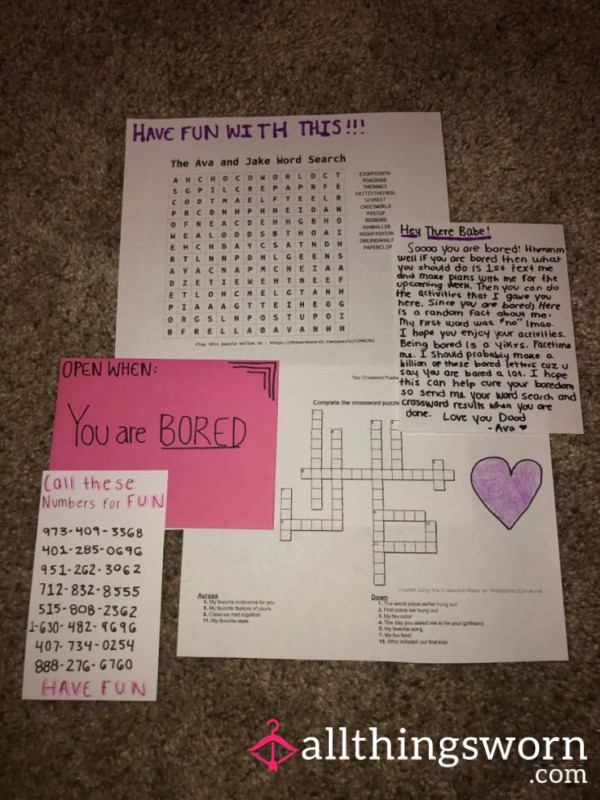 HAVE FUN WITH THIS!!!
The Ava and Jake Word Search
A H C H O C O W O R L D C T
S G P I L C R E P A P R F E
C O D T M A E L F T E E L R
P R C D N H P H H E I D A N
O F N E A C D E H H G B H O
W E A L O D D S B T H O A I
E H C H D A Y C S A T N D H
R T L N N P D H L G E E N S
A Y A C N A P M C N E I A A
D Z E T I E W E H T N E E F
E T L O H C M E L G T A N H
P I A A A G T T E I H E O G
O R G S L N P O S T U P O I
B F R E L L A B A V A N H H
EIGHTEENTH
POWERADE
THEDANCE
FRITZYTHEFROG
SCHREET
CHOCOWORLD
POSTUP
REDNONE
AVABALLER
HIGHFASHION
ONEANDAHALF
PAPERCLIP
Play this puzzle online at :
Hey There Babe!
Soooo you are bored! Hmmmm
well if you are bored then what
you should do is 1st text me
and make plans with me for the
upcoming week. Then you can do
the activities that I gave you
here. Since you are bored, Here
is a random fact about me:
My first word was "no" lmao.
I hope you enjoy your activities.
Being bored is a yikrs. Facetime
me. I should probably make a
billion of these bored letters cuz u
say you are bored a lot. I hope
this can help cure your boredom
so send me your word search and
crossword results when you are
done. Love you Dood
-Ava ♥
OPEN WHEN:
You are BORED
Your Crossword Puzzle
Complete the crossword puzzle
Call these
Numbers for FUN
973-409-3368
401-285-0696
951-262-3062
712-832-8555
515-808-2362
1-630-482-9696
407-734-0254
888-276-6760
HAVE FUN
Created using the Crossword Maker on TheTeachersCorner.net
Across
5. My favorite nickname for you
8. My favorite feature of yours
9. Class we had together
11. My favorite store
Down
1. The worst place we've hung out
2. First place we hung out
3. My fav color
4. The day you asked me to be your girlfriend
6. My favorite song
7. My fav food
10. Who initiated our first kiss
allthingsworn
.com